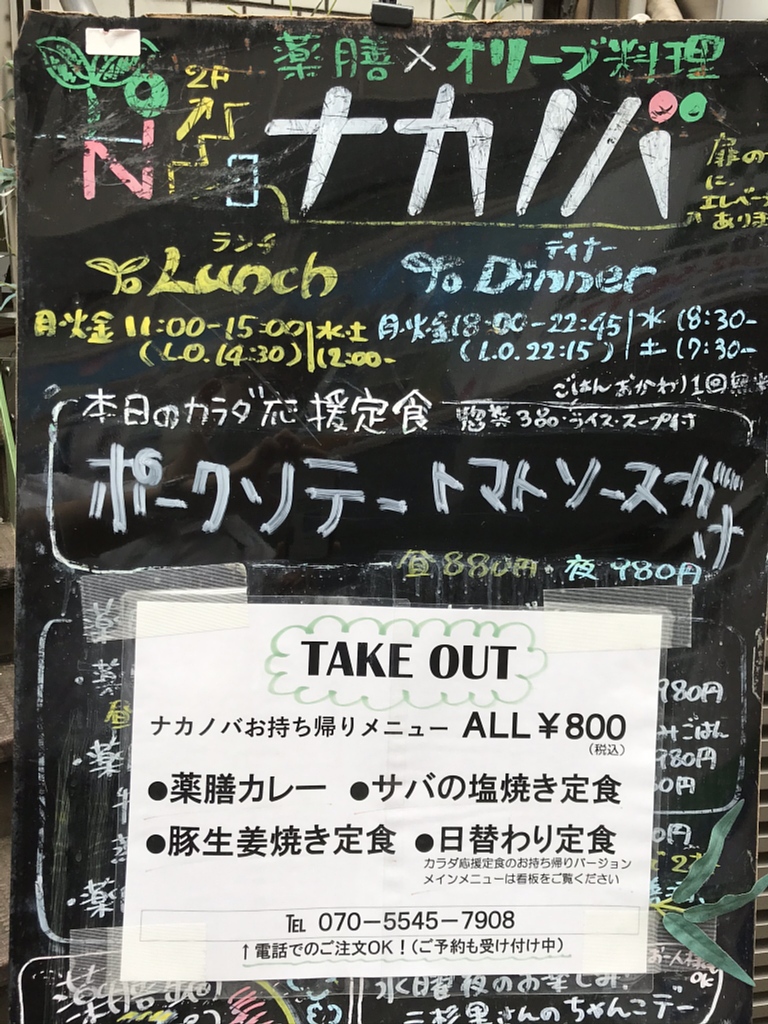 薬膳×オリーブ料理
2F
N
ナカノバ
扉の
に
エレベー
ありま
ランチ
Lunch
月・火・金 11:00-15:00 水・土
(L.O.14:30) 12:00-
ディナー
Dinner
月・火・金 18:00-22:45 水 18:30-
(L.O.22:15) 土 17:30-
ごはんおかわり1回無料
本日のカラダ応援定食 惣菜3品・ライス・スープ付
ポークソテートマトソースがけ
昼880円・夜980円
TAKE OUT
ナカノバお持ち帰りメニュー ALL¥800
(税込)
●薬膳カレー ●サバの塩焼き定食
●豚生姜焼き定食 ●日替わり定食
カラダ応援定食のお持ち帰りバージョン
メインメニューは看板をご覧ください
℡ 070-5545-7908
↑電話でのご注文OK!(ご予約も受け付け中)
980円
ごはん
980円
水曜夜のお楽しみ!
三杉里さんのちゃんこデー